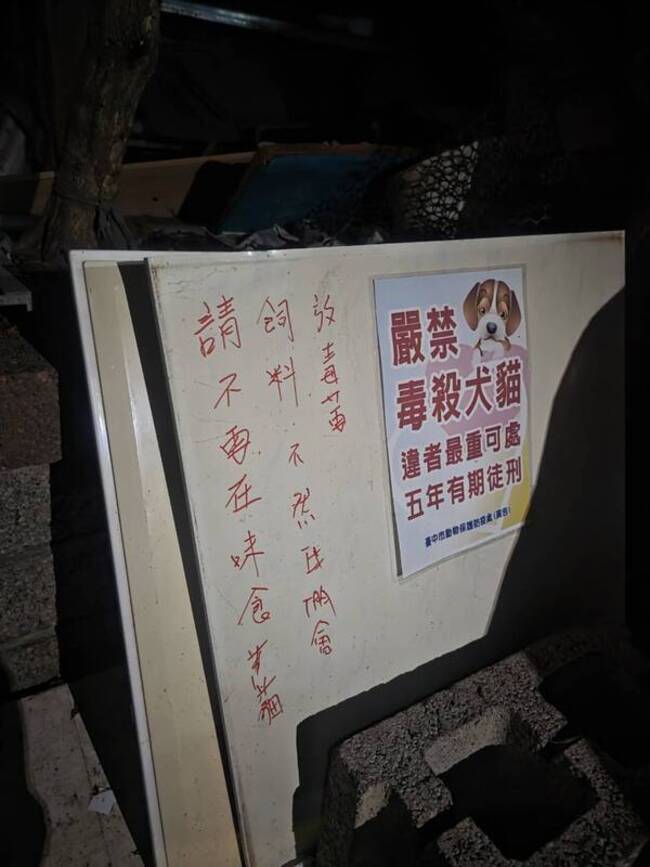 請不要在味食貓
飼料不然我們會
放毒
嚴禁
毒殺犬貓
違者最重可處
五年有期徒刑
臺中市動物保護防疫處(廣告)